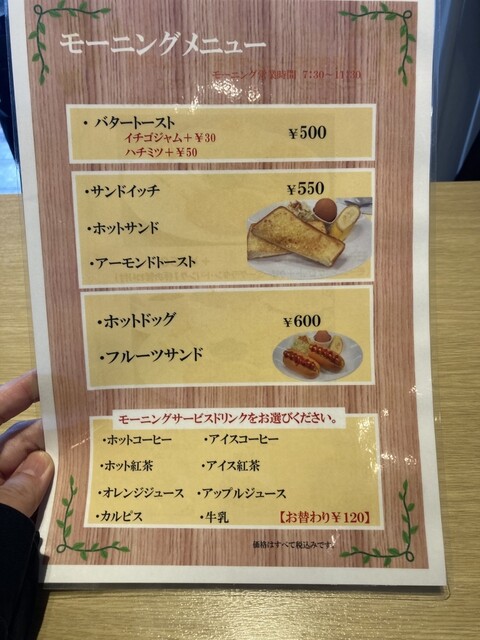 モーニングメニュー
モーニング営業時間 7:30～11:30
・バタートースト ￥500
イチゴジャム＋￥30
ハチミツ＋￥50
・サンドイッチ ￥550
・ホットサンド
・アーモンドトースト
・ホットドッグ ￥600
・フルーツサンド
モーニングサービスドリンクをお選びください。
・ホットコーヒー ・アイスコーヒー
・ホット紅茶 ・アイス紅茶
・オレンジジュース ・アップルジュース
・カルピス ・牛乳 【お替わり￥120】
価格はすべて税込みです。